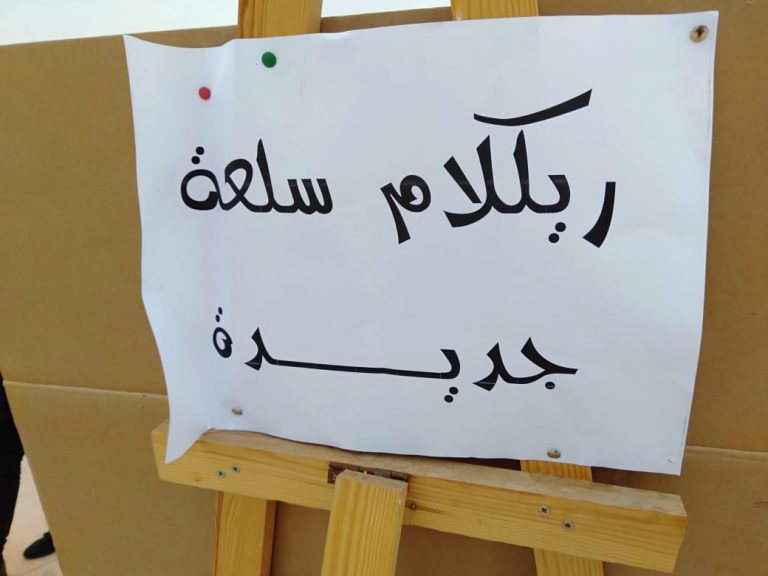 ريكلام سلعة
جديـــدة